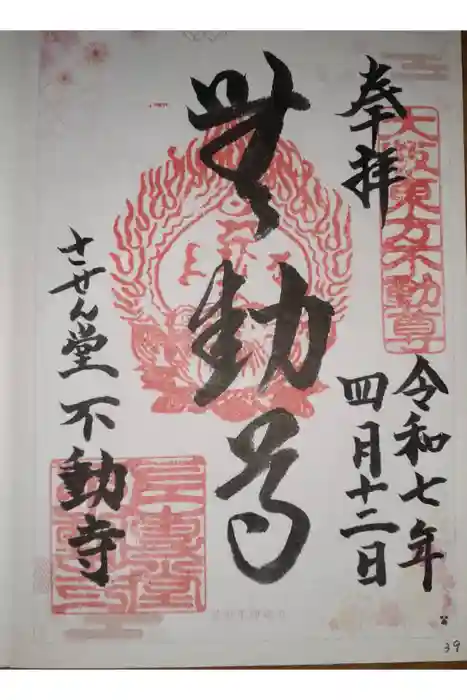 奉拝
大阪東方不動尊
令和七年
四月十二日
無動尊
させん堂不動寺
39